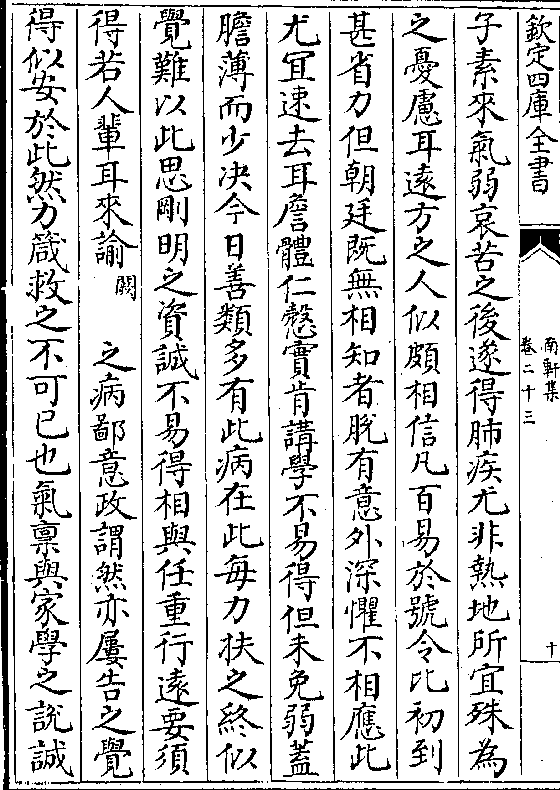 欽定四庫全書
南軒集
卷二十三
十
子素來氣弱哀苦之後遂得肺疾尤非熱地所宜殊為
之憂慮耳遠方之人似頗相信凡百易於號令比初到
甚省力但朝廷既無相知者脱有意外深懼不相應此
尤冝速去耳詹體仁慤實肯講學不易得但未免弱蓋
膽薄而少决今日善類多有此病在此每力扶之終似
覺難以此思剛明之資誠不易得相與任重行遠要須
得若人輩耳來諭闕之病鄙意政謂然亦屢告之覺
得似安於此然力箴救之不可已也氣禀與家學之説誠